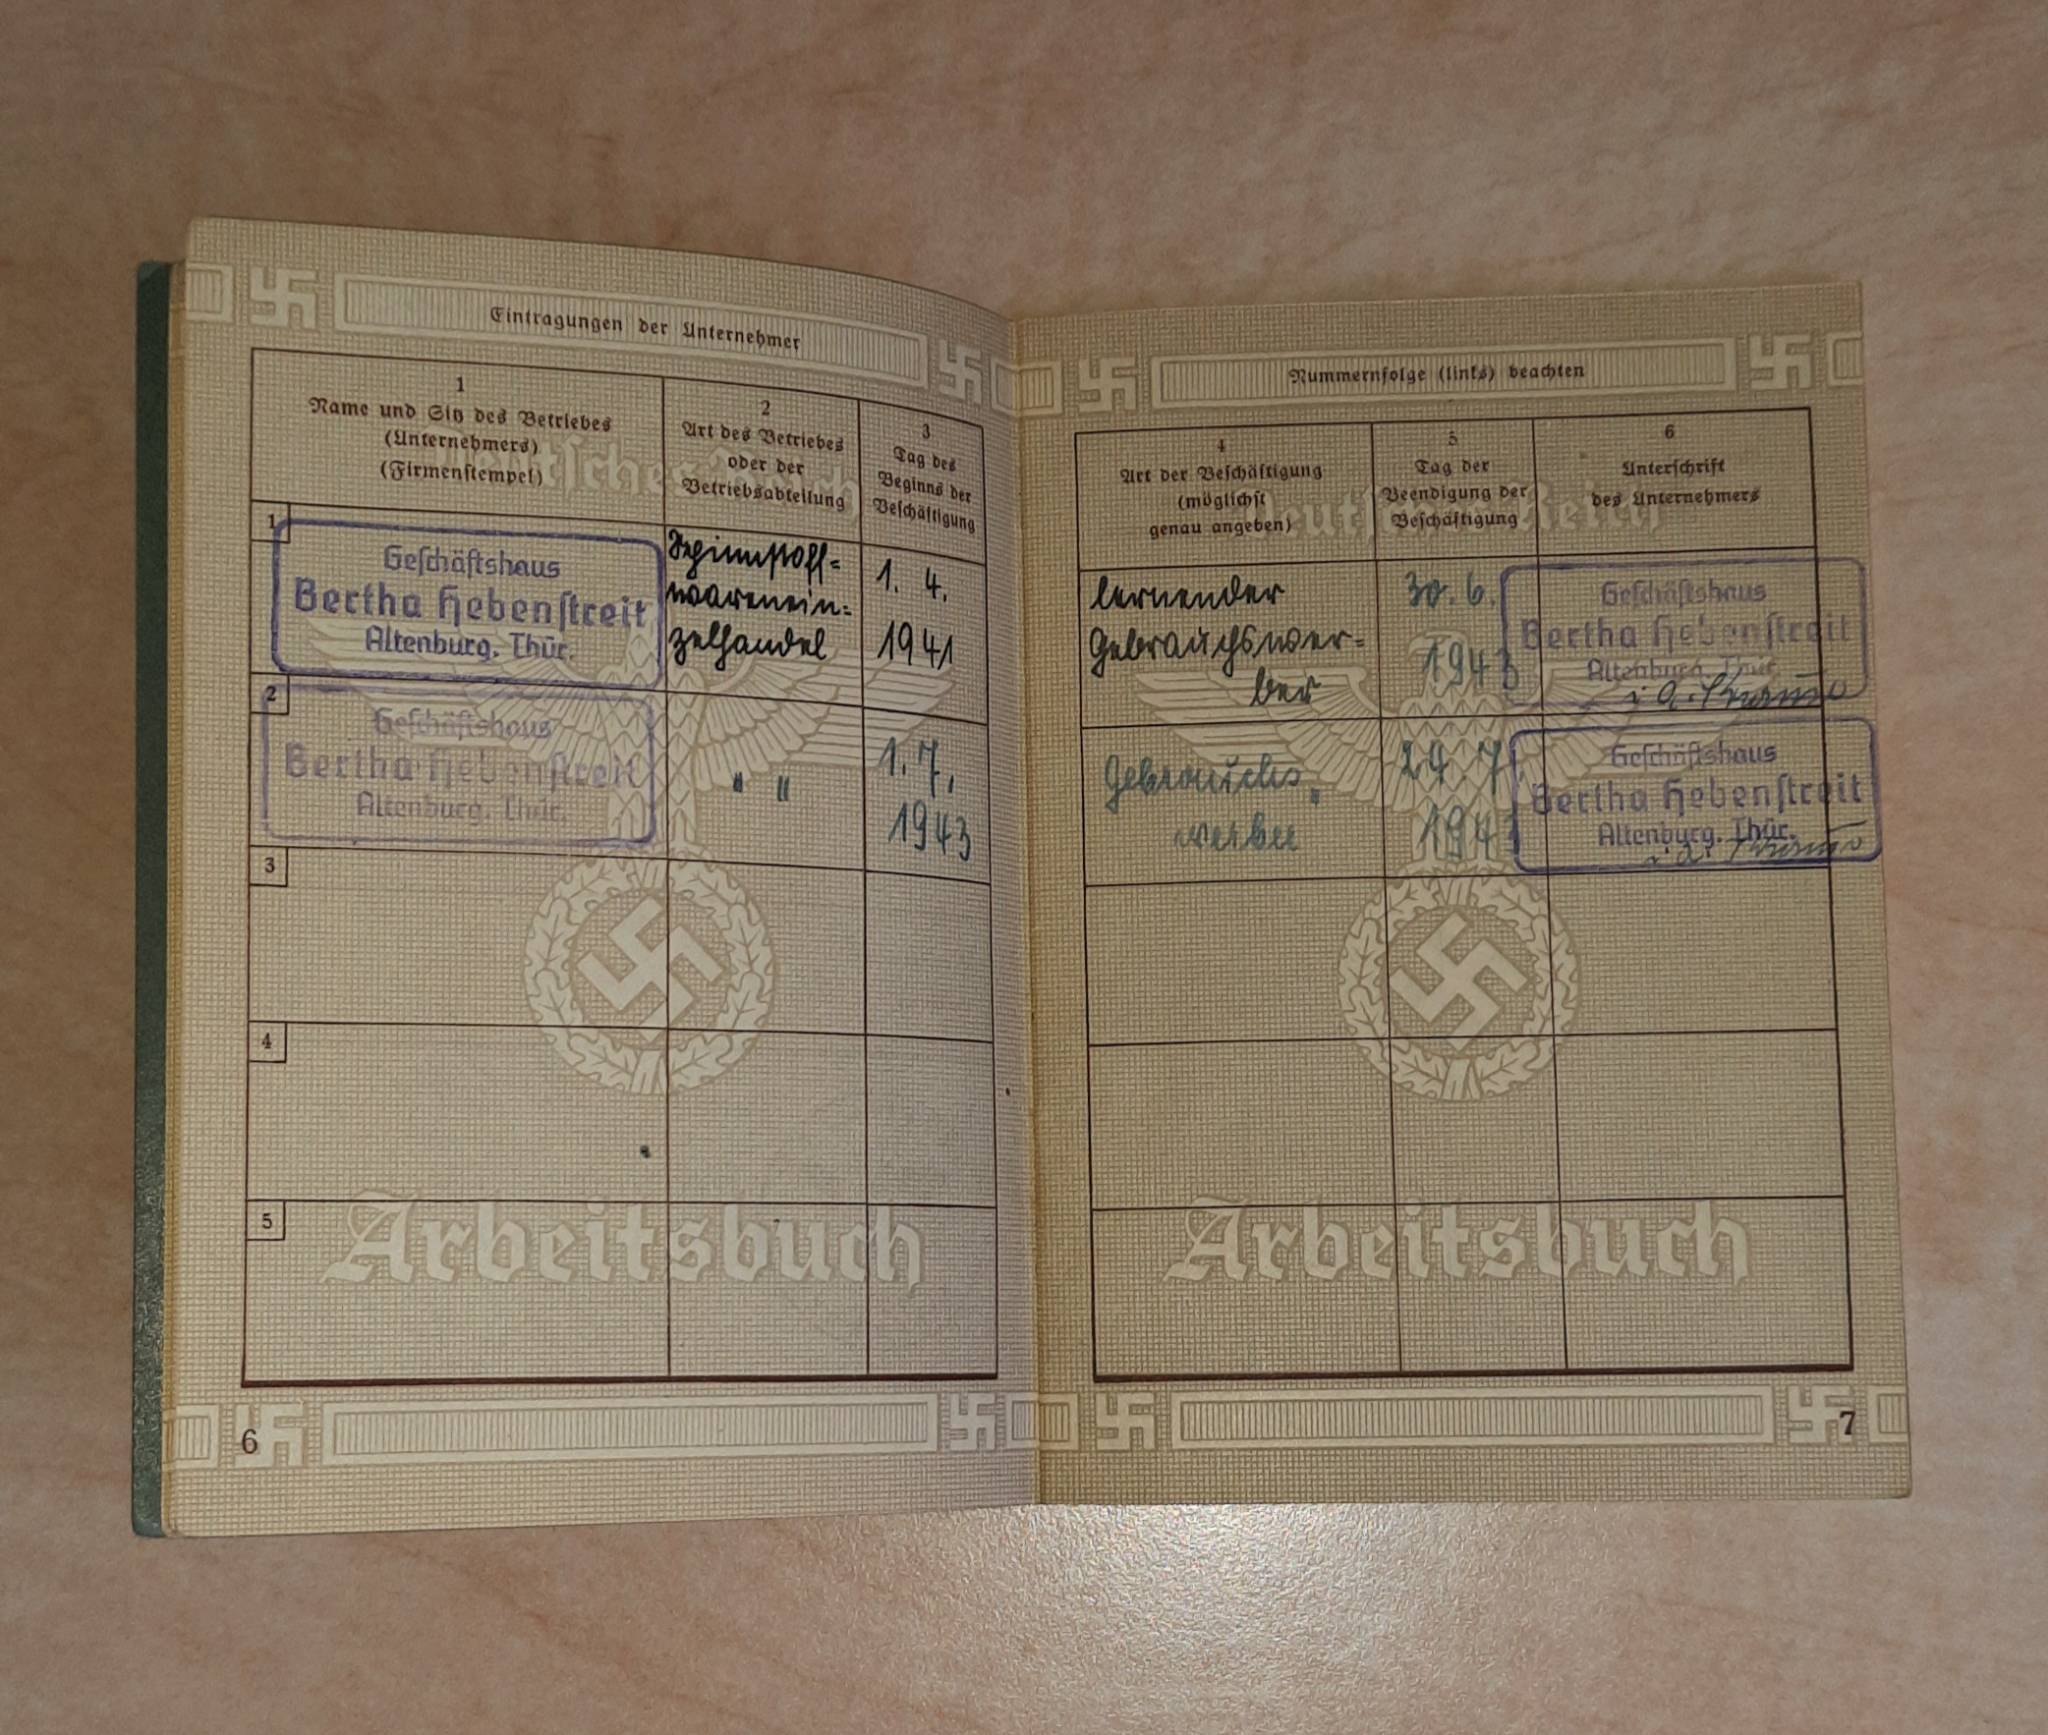 Eintragungen der Unternehmer
1
Name und Sitz des Betriebes
(Unternehmers)
(Firmenstempel)
2
Art des Betriebes
oder der
Betriebsabteilung
3
Tag des
Beginns der
Beschäftigung
Deutsches Reich
1
Geschäftshaus
Bertha Hebenstreit
Altenburg, Thür.
Spinnstoff=
warenein=
zelhandel
1. 4.
1941
2
Geschäftshaus
Bertha Hebenstreit
Altenburg, Thür.
" "
1. 7.
1943
3
4
5
Arbeitsbuch
6
Nummernfolge (links) beachten
4
Art der Beschäftigung
(möglichst
genau angeben)
5
Tag der
Beendigung der
Beschäftigung
6
Unterschrift
des Unternehmers
Deutsches Reich
lernender
Gebrauchswer=
ber
30. 6.
1943
Geschäftshaus
Bertha Hebenstreit
Altenburg, Thür.
i. A.
Gebrauchs
werber
24. 7.
1943
Geschäftshaus
Bertha Hebenstreit
Altenburg, Thür.
i. A.
Arbeitsbuch
7